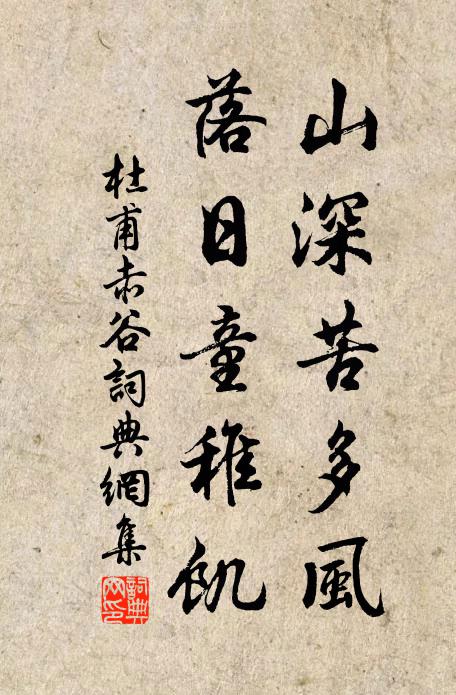 山深苦多風
落日童稚飢
杜甫赤谷詞典網集
詞典
网印